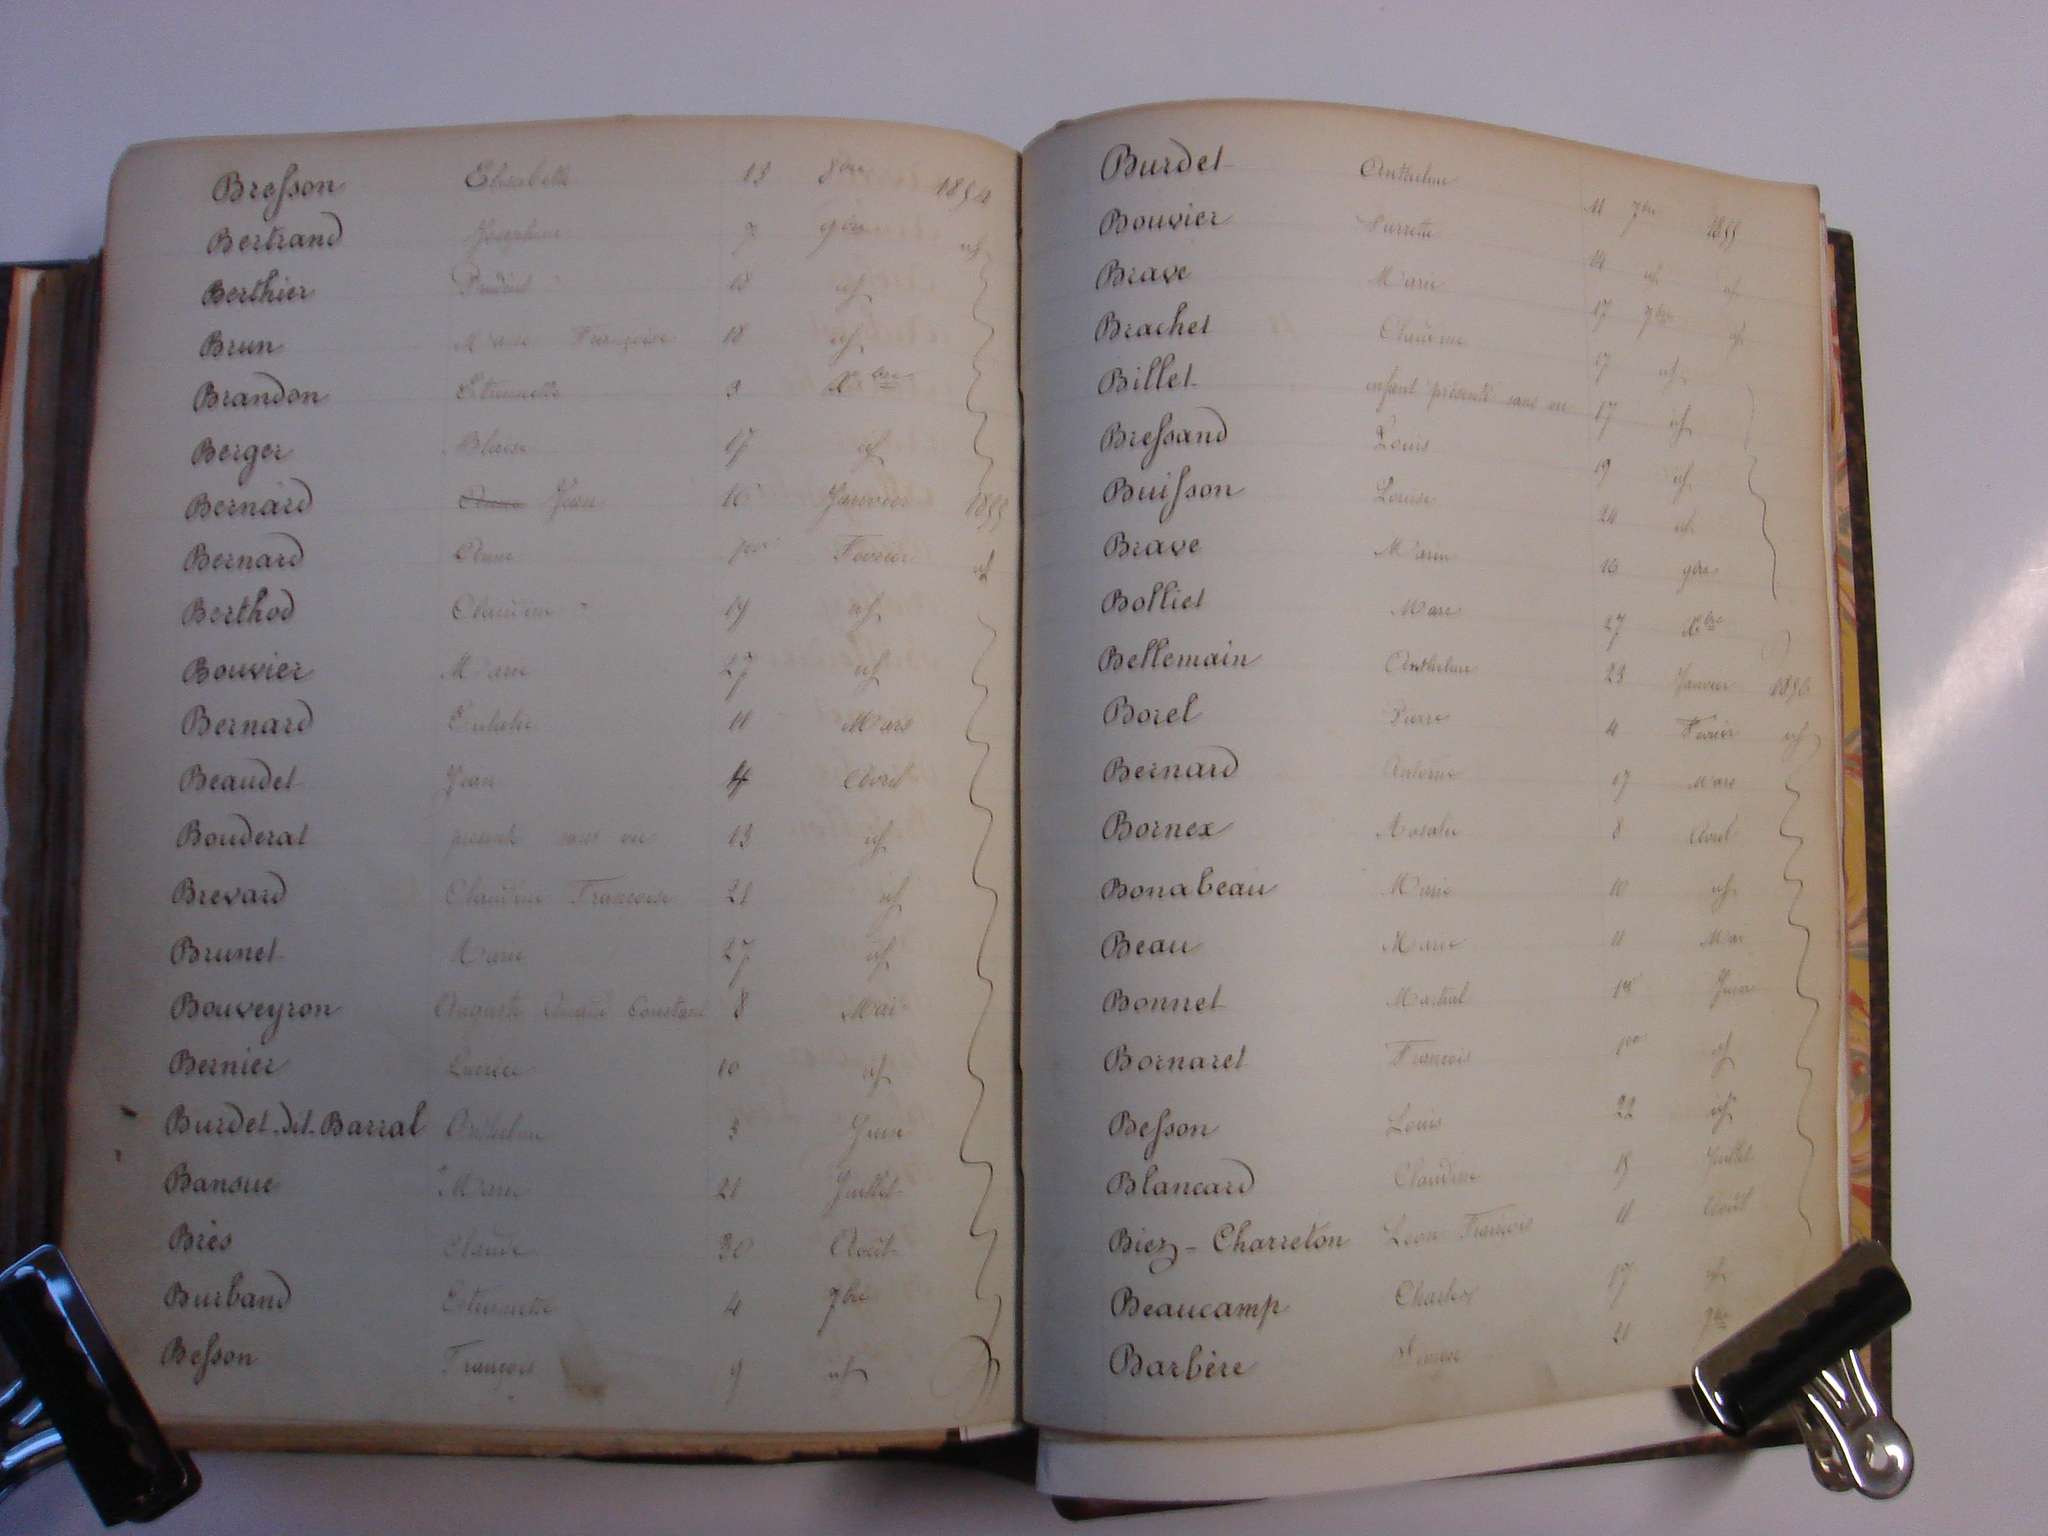 Bresson Elisabeth 13 8bre 1854
Bertrand Joséphine 7 9bre id
Berthier 18 id
Brun Marie Françoise 18 id
Brandon Etiennette 9 Xbre
Berger 17 id
Bernard Jean 16 Janvier 1855
Bernard Anne 1er Fevrier id
Berthod Claudine 19 id
Bouvier Marie 27 id
Bernard 11 Mars
Beaudet Jean 4 Avril
Bouderat présenté sans vie 13 id
Brevard Claudine Françoise 21 id
Brunet Marie 27 id
Bouveyron Auguste Constant 8 Mai
Bernier 10 id
Burdet dit Barral Anthelme 3 Juin
Bansue Marie 21 Juillet
Brès Claude 30 Août
Burband Etiennette 4 7bre
Besson François 9 id
Burdet Anthelme 11 7bre 1855
Bouvier Pierrette 14 id id
Brave Marie 17 7bre id
Brachet Claudine 17 id
Billet enfant présenté sans vie 17 id
Bressand Louis 19 id
Buisson Louise 24 id
Brave Marie 16 9bre
Bolliet Marie 27 Xbre
Bellemain Anthelme 23 Janvier 1856
Borel Pierre 4 Fevrier id
Bernard Antoine 17 Mars
Bornex Rosalie 8 Avril
Bonabeau Marie 10 id
Beau Marie 11 Mai
Bonnet Martial 1er Juin
Bornaret François 1er id
Besson Louis 22 id
Blancard Claudine 15 Juillet
Biez-Charreton Leon François 11 Août
Beaucamp Charles 17 id
Barbère 21 7bre